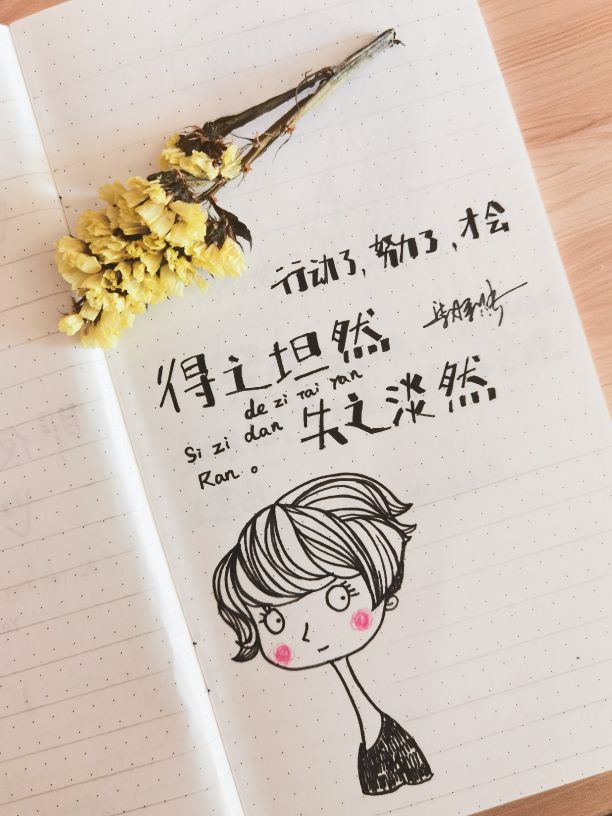 行动了,努力了,才会
得之坦然
de zi tai ran
失之淡然
Si zi dan
Ran。